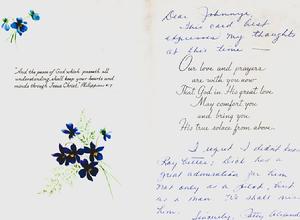 "And the peace of God which passeth all
understanding, shall keep your hearts and
minds through Jesus Christ." Philippians 4:7
Dear Johnnye,
This card best
expresses my thoughts
at this time —
Our love and prayers
are with you now
That God in His great love
May comfort you
and bring you
His true solace from above.
I regret I didn't know
Ray
great admiration for him
not only as a pilot, but
as a man. We shall miss
him.
Sincerely,